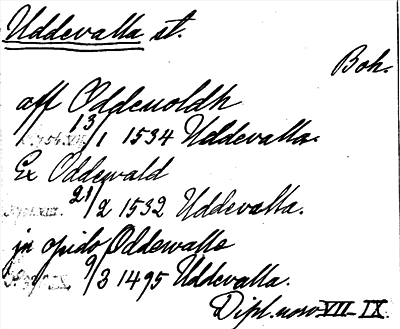 Uddevalla st.
Boh.
aff Oddewoldh
13/1 1534 Uddevalla.
Ex Oddewald
21/2 1532 Uddevalla.
jn opido Oddewalle
9/3 1495 Uddevalla.
Dipl. norv VII-IX.